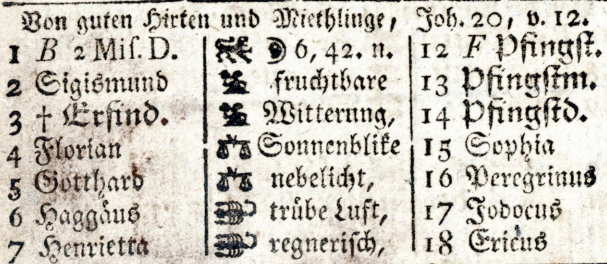 Von guten Hirten und Miethlinge, Joh. 20, v. 12.
1 B 2 Miſ. D. 6, 42. n. 12 F Pfingſt.
2 Sigismund fruchtbare 13 Pfingſtm.
3 † Erfind. Witterung, 14 Pfingſtd.
4 Florian Sonnenblike 15 Sophia
5 Gotthard nebelicht, 16 Peregrinus
6 Haggäus trübe Luft, 17 Jodocus
7 Henrietta regneriſch, 18 Ericus